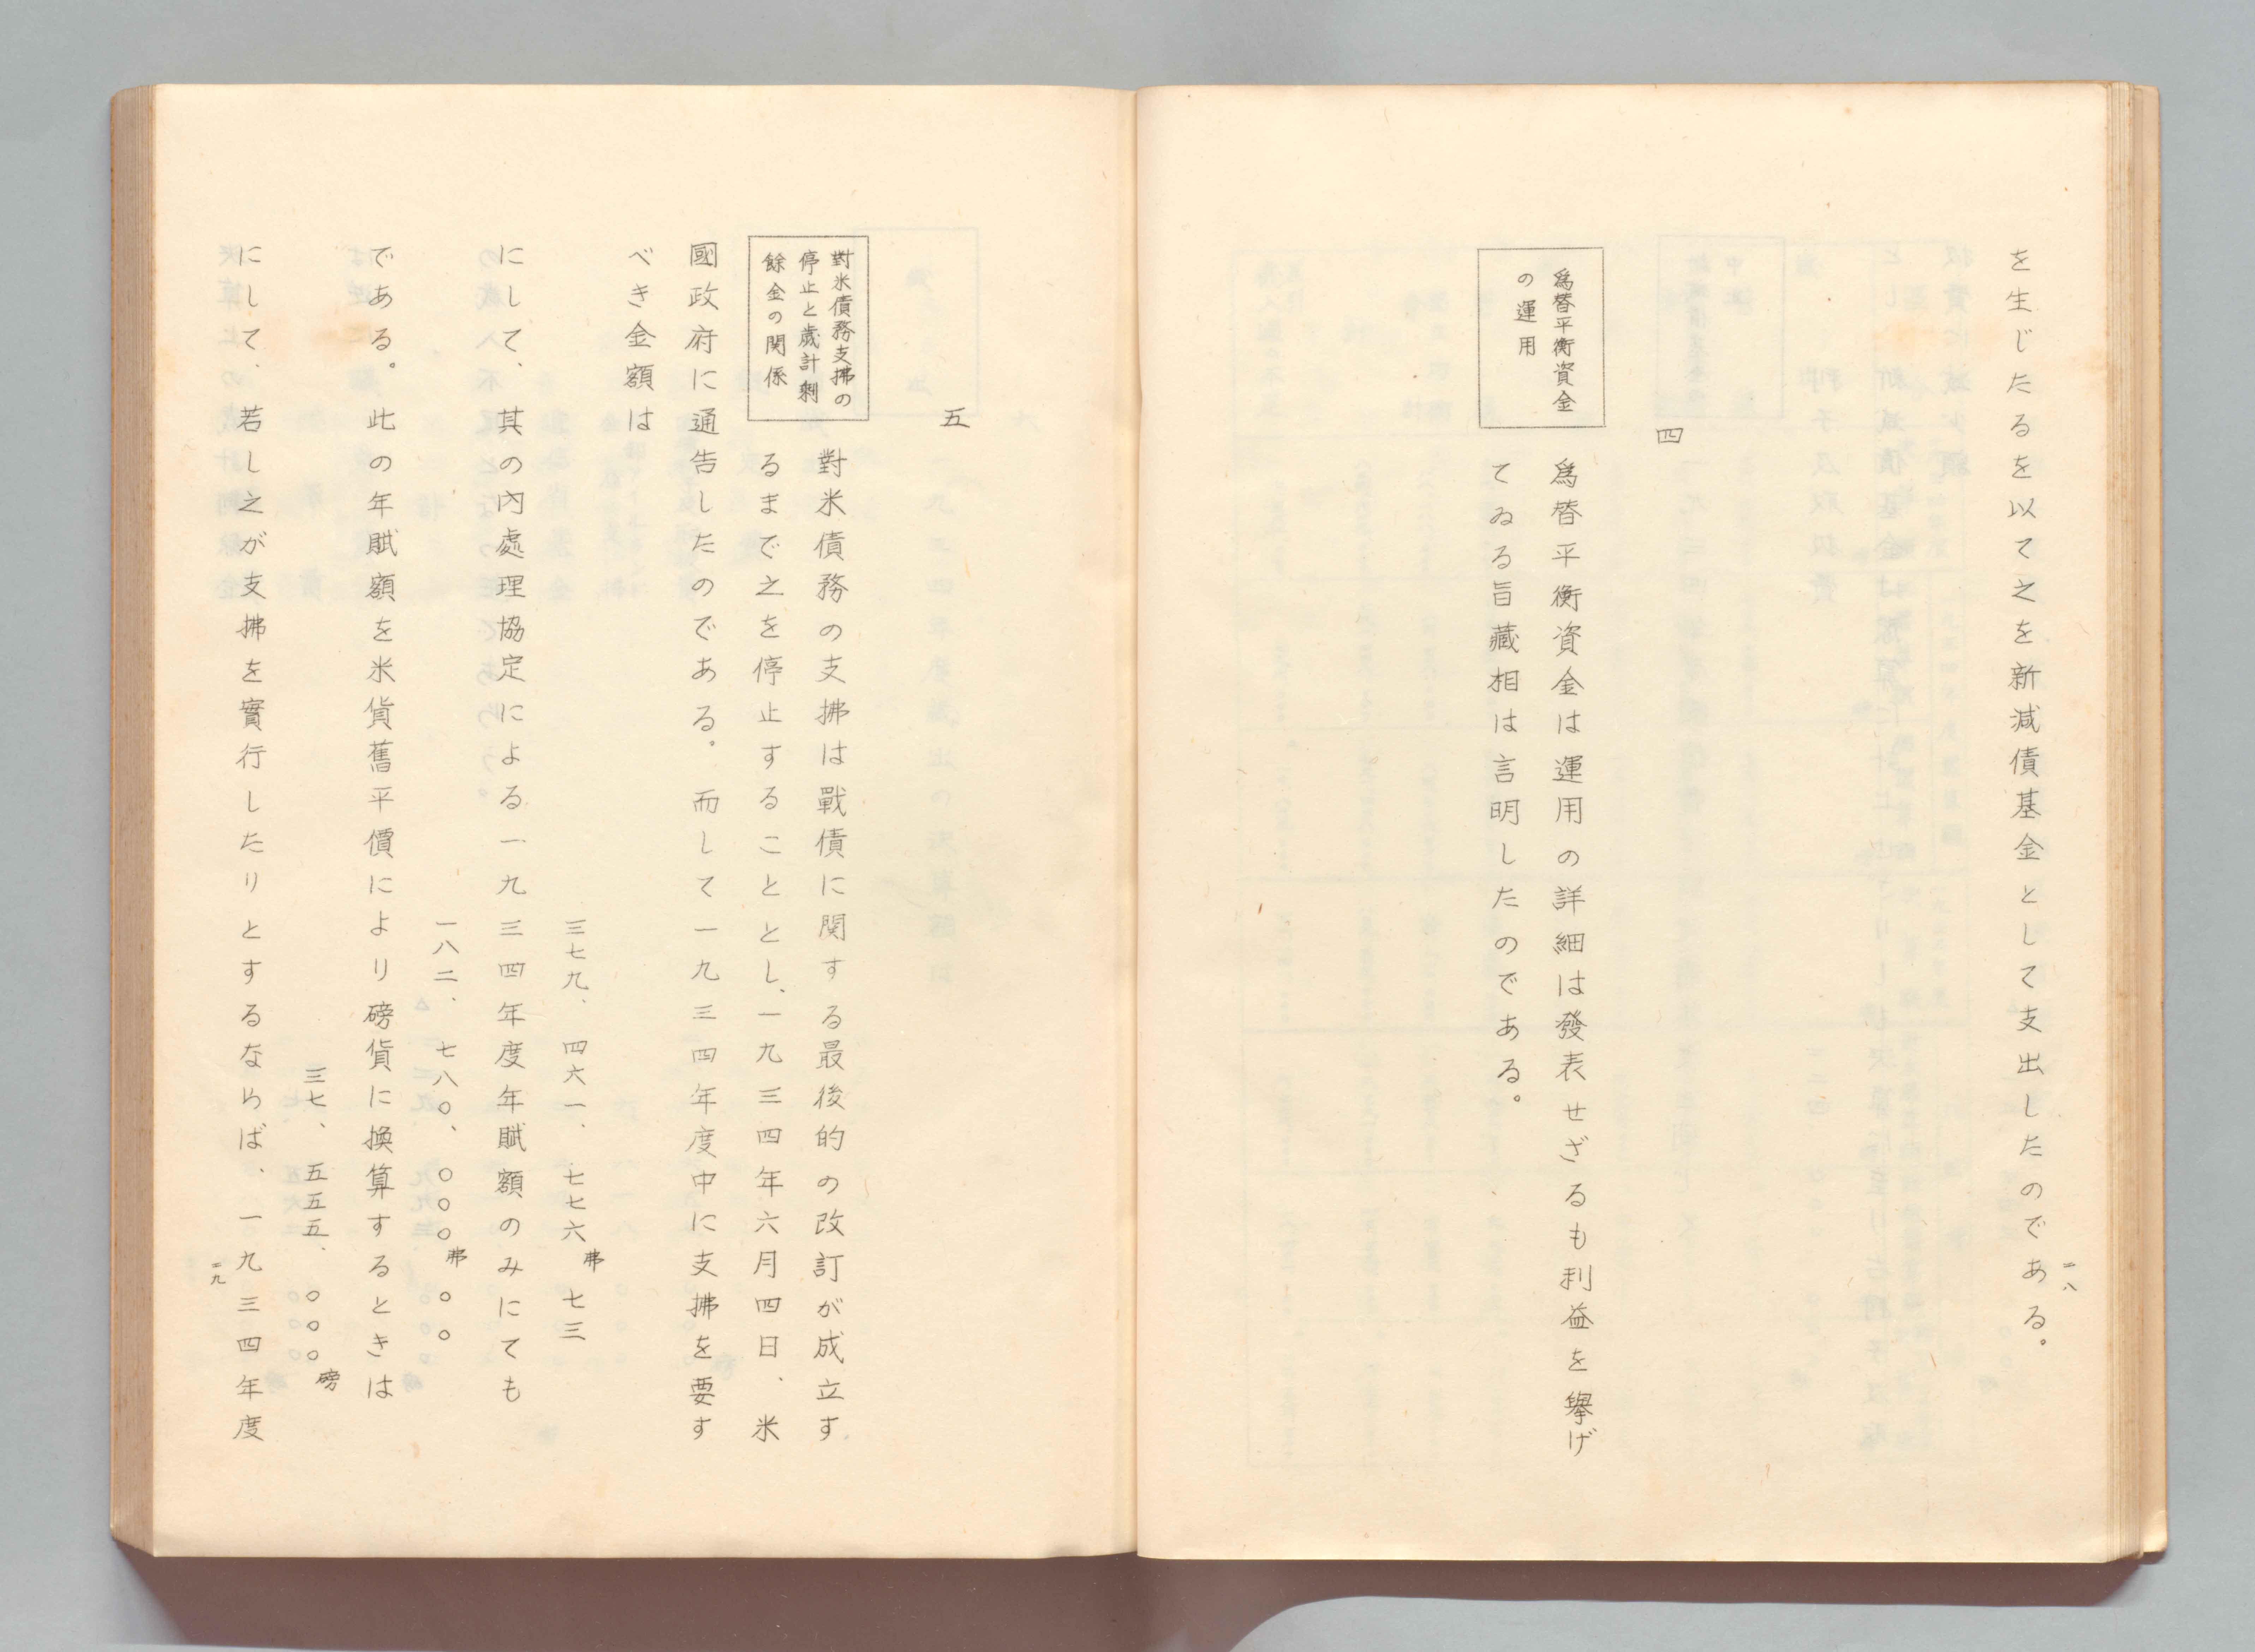 を生じたるを以て之を新減債基金として支出したのである。
一八
四
爲替平衡資金
の運用
爲替平衡資金は運用の詳細は發表せざるも利益を擧げ
てゐる旨藏相は言明したのである。
五
對米債務支拂の
停止と歲計剩
餘金の関係
對米債務の支拂は戰債に関する最後的の改訂が成立す
るまで之を停止することとし、一九三四年六月四日、米
國政府に通告したのである。而して一九三四年度中に支拂を要す
べき金額は
三七九、四六一、七七六弗七三
にして、其の內處理協定による一九三四年度年賦額のみにても
一八二、七八〇、〇〇〇弗〇〇
である。此の年賦額を米貨舊平價により磅貨に換算するときは
三七、五五五、〇〇〇磅
にして、若し之が支拂を實行したりとするならば、一九三四年度
一九